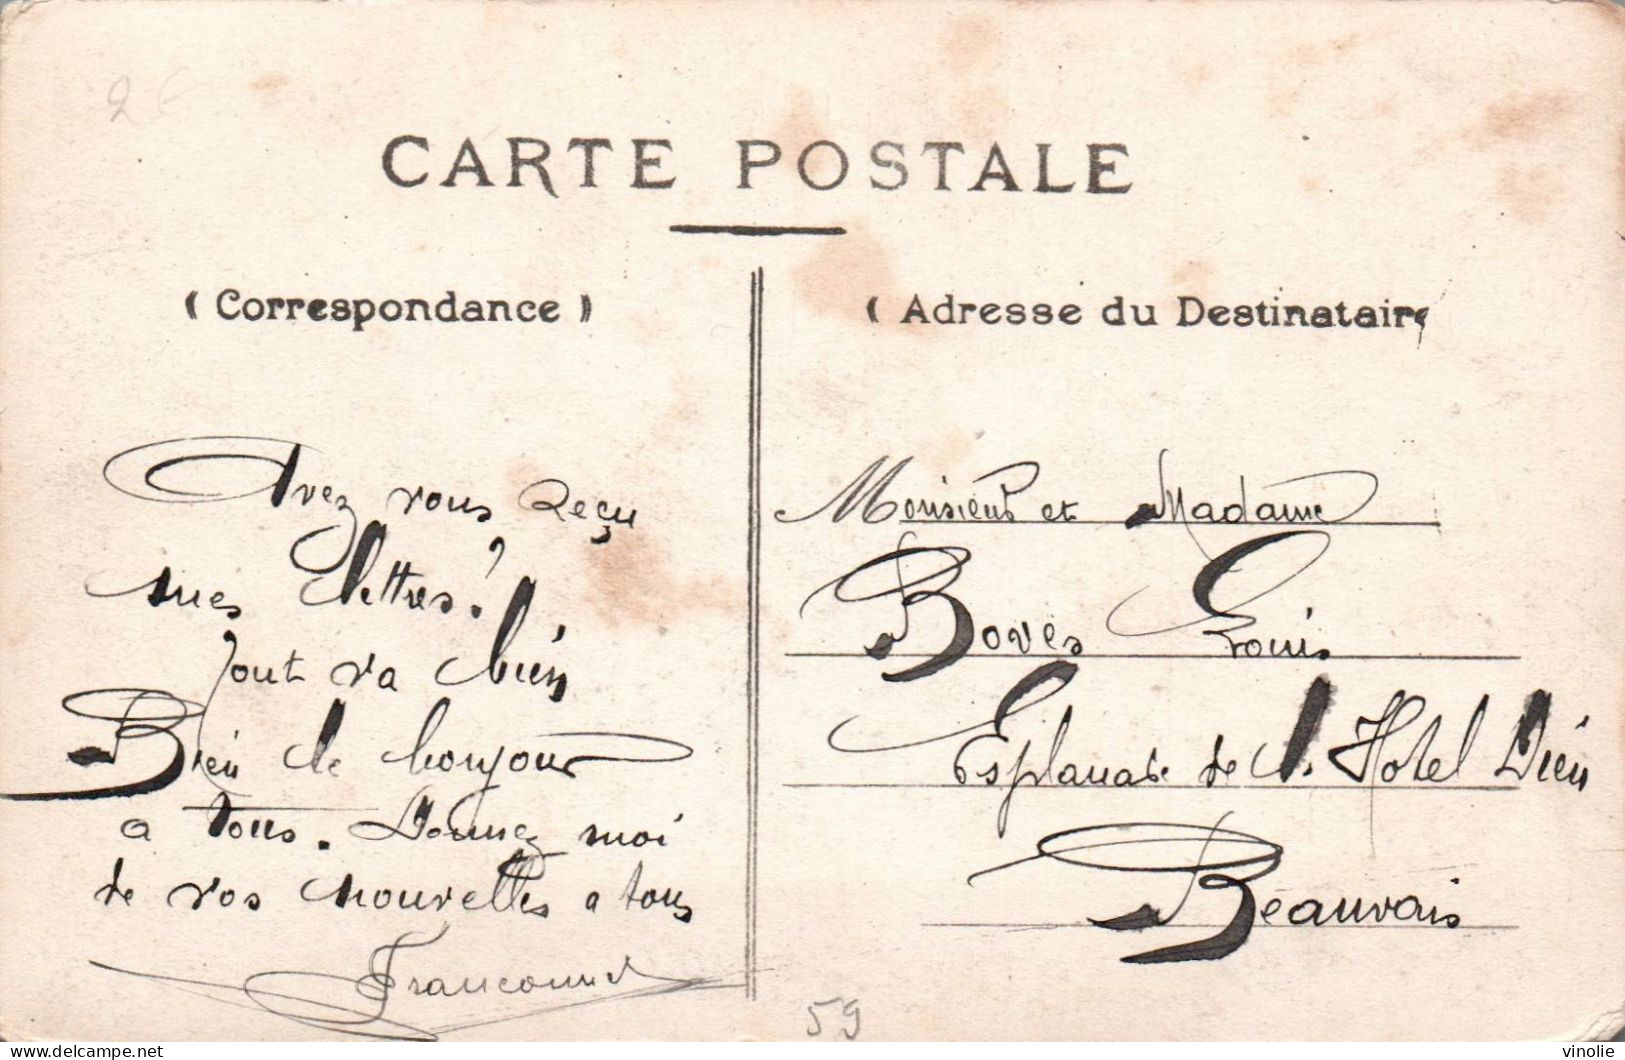 2€
CARTE POSTALE
( Correspondance )
( Adresse du Destinataire
Avez vous Reçu
mes lettres?
Tout va bien
Bien le bonjour
a tous. Donnez moi
de vos nouvelles a tous
Monsieur et Madame
Boves Louis
Esplanade de l. Hotel Dieu
Beauvais
59
delcampe.net
vinolie